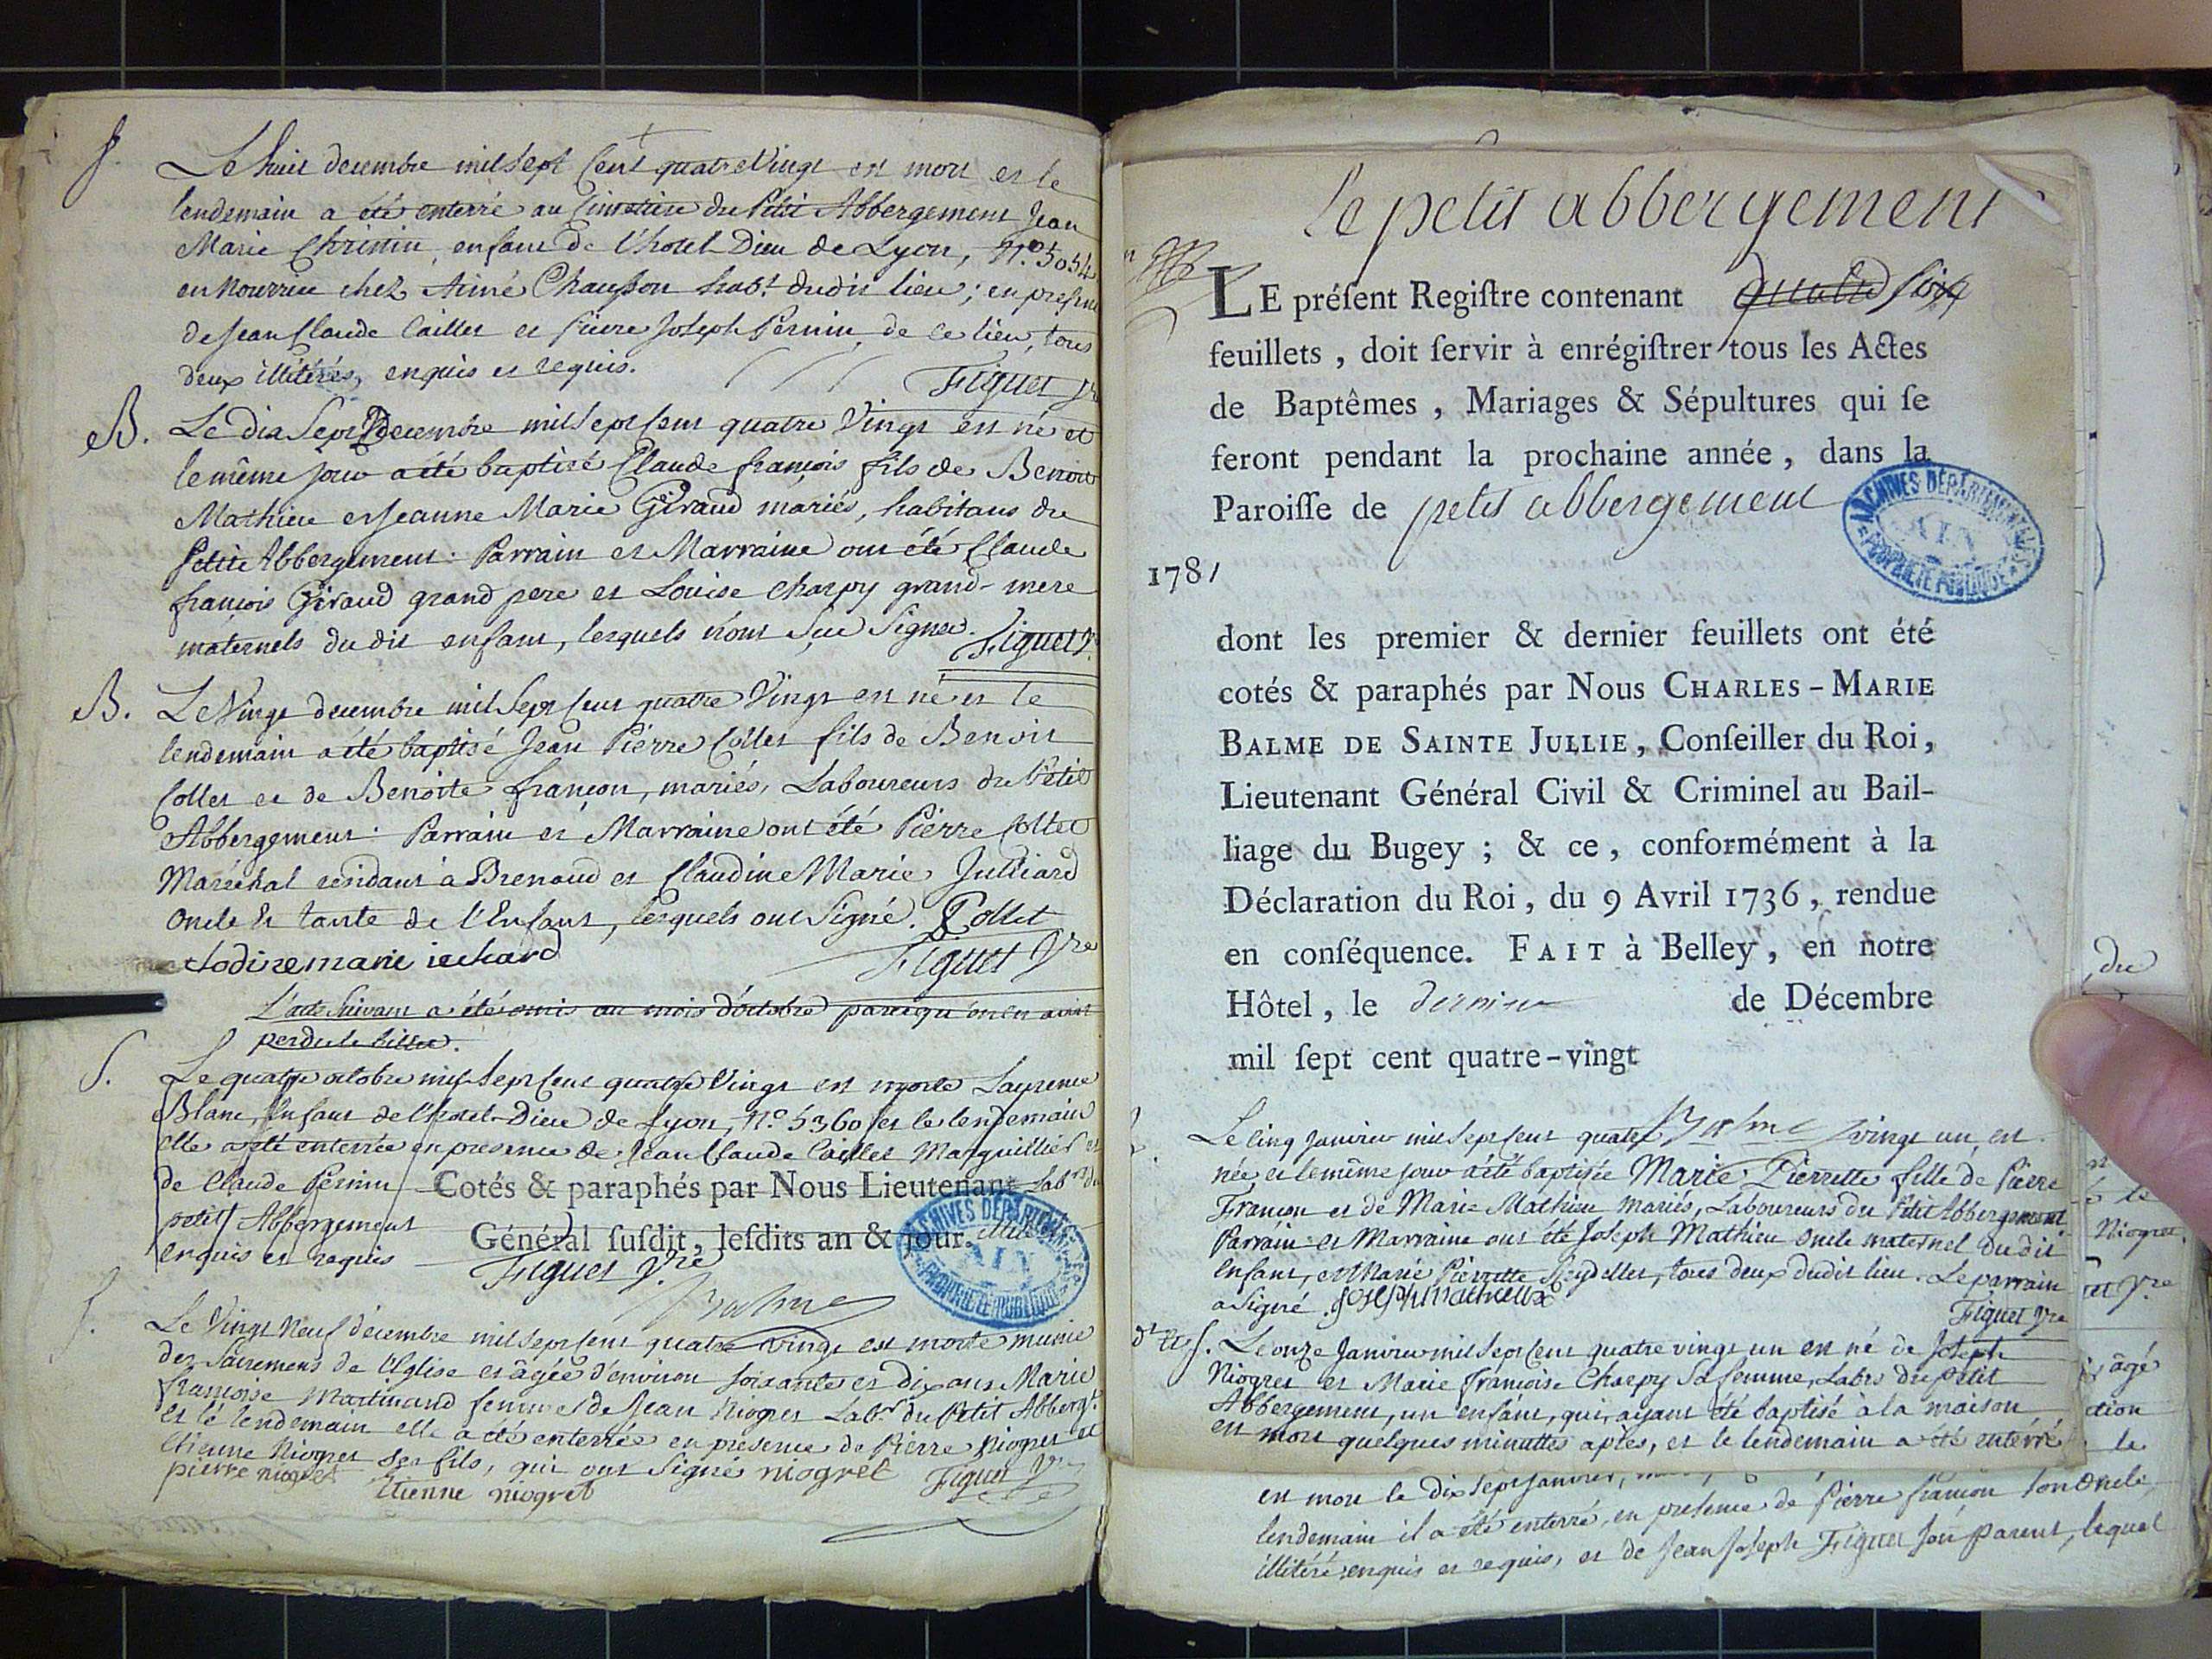 S.
Le huit decembre mil Sept Cent quatre Vingt est mort et le
lendemain a été enterré au Cimetiere du Petit Abbergement Jean
Marie Chrinin, enfant de l'hotel Dieu de Lyon, N.° 5054
en Nourrice chez Aimé Chausson hab.t dudit lieu; en presence
de Jean Claude Caillet et Pierre Joseph Pernin, de ce lieu, tous
deux illitérés, enquis et requis.
Figuet Vre
B.
Le dix Sept decembre mil Sept Cent quatre Vingt est né et
le même jour a été baptisé Claude françois fils de Benoit
Mathieu et Jeanne Marie Giraud mariés, habitans du
Petit Abbergement. Parrain et Marraine ont été Claude
françois Giraud grand pere et Louise Charpy grand-mere
maternels du dit enfant, lesquels n'ont Sçu Signer.
Figuet V.
B.
Le Vingt decembre mil Sept Cent quatre Vingt est né et le
lendemain a été baptisé Jean Pierre Collet fils de Benoit
Collet et de Benoite françon, mariés, Laboureurs du Petit
Abbergement: Parrain et Marraine ont été Pierre Collet
Maréchal residant à Brenaud et Claudine Marie Julliard
oncle et tante de l'Enfant, lesquels ont Signé. P Collet
clodine marie iechard
Figuet Vre
L'acte Suivant a été omis au mois d'octobre parcequ'on en avoit
perdu le billet.
S.
Le quatre octobre mil Sept Cent quatre Vingt est morte Laurence
Blanc, Enfant de l'hotel-Dieu de Lyon, N.° 5360 et le lendemain
elle a été enterrée en presence de Jean Claude Caillet Marguillier et
de Claude Pernin Lab.rs du
Cotés & paraphés par Nous Lieutenant
petit Abbergement
Général ſuſdit, leſdits an & jour.
enquis et requis
Figuet Vre
ARCHIVES DÉPARTEMENTALES
AIN
PROPRIÉTÉ PUBLIQUE
Balme
S.
Le Vingt Neuf décembre mil Sept Cent quatre vingt est morte munie
des Sacremens de l'Eglise et âgée d'environ Soixante et Dix ans Marie
françoise Martinand femme de Jean Niogret Lab.r du Petit Abberg.t
et le lendemain elle a été enterrée en presence de Pierre Niogret et
Etienne Niogret Ses fils, qui ont Signé niogret Figuet Vre
pierre niogret Etienne niogret
le petit abbergement
LE préſent Regiſtre contenant quatre Six
feuillets, doit ſervir à enrégiſtrer tous les Actes
de Baptêmes, Mariages & Sépultures qui ſe
feront pendant la prochaine année, dans la
Paroiſſe de petit abbergement
ARCHIVES DÉPARTEMENTALES
AIN
PROPRIÉTÉ PUBLIQUE
1781
dont les premier & dernier feuillets ont été
cotés & paraphés par Nous CHARLES-MARIE
BALME DE SAINTE JULLIE, Conſeiller du Roi,
Lieutenant Général Civil & Criminel au Bail-
liage du Bugey; & ce, conformément à la
Déclaration du Roi, du 9 Avril 1736, rendue
en conſéquence. FAIT à Belley, en notre
Hôtel, le dernier de Décembre
mil ſept cent quatre-vingt
Balme
Le Cinq Janvier mil Sept Cent quatre vingt un, est
née, et le même jour a été baptisée Marie Pierrette fille de Pierre
Françon et de Marie Mathieu mariés, Laboureurs du Petit Abbergement
Parrain et Marraine ont été Joseph Mathieu oncle maternel du dit
Enfant, et Marie Pierrette Reydellet, tous deux dudit lieu. Le parrain
a Signé. Joseph mathieux
Figuet Vre
S. Le onze Janvier mil Sept Cent quatre vingt un est né de Joseph
Niogret et Marie françoise Charpy Sa femme, Labrs du petit
Abbergement, un enfant, qui, ayant été baptisé à la maison
est mort quelques minuttes après, et le lendemain a été enterré
est mort le Dix Sept Janvier,
lendemain il a été enterré, en presence de Pierre françon Son Oncle,
illitéré, enquis et requis, et de Jean Joseph Figuet Son parent, lequel
du
le
Niogret
et Vre
âgé
ction
le